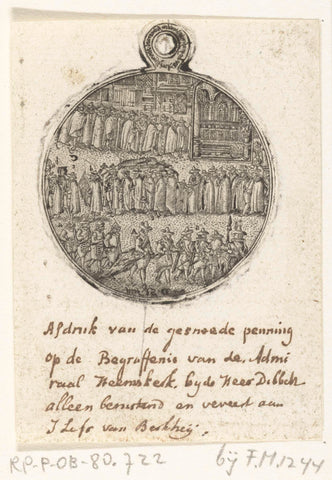 Afdruk van de gesneede penning
op de Begraffenis van de Admi
raal Heemskerk, by de Heer Dibbetz
alleen berustend en vereert aan
J. Le fr van Berkheij.
RP-P-OB-80.722
bij F.M. 1244